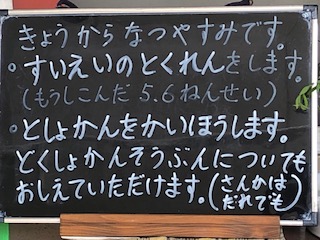 きょうからなつやすみです。
。すいえいのとくれんをします。
（もうしこんだ 5.6ねんせい）
。としょかんをかいほうします。
どくしょかんそうぶんについても
おしえていただけます。（さんかは
だれでも）